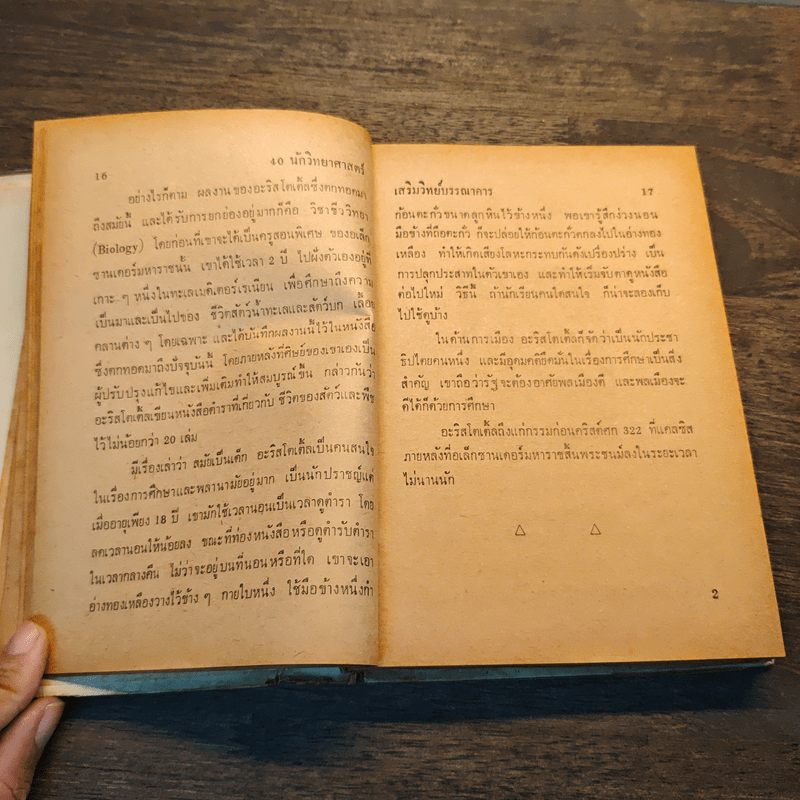 16
40 นักวิทยาศาสตร์
อย่างไรก็ตาม ผลงานของอะริสโตเติ้ลซึ่งตกทอดมา
ถึงสมัยนี้ และได้รับการยกย่องอยู่มากก็คือ วิชาชีววิทยา
(Biology) โดยก่อนที่เขาจะได้เป็นครูสอนพิเศษ ของอเล็ก
ซานเดอร์มหาราชนั้น เขาได้ใช้เวลา 2 ปี ไปฝังตัวอยู่ที่
เกาะ ๆ หนึ่งในทะเลเมดิเตอร์เรเนียน เพื่อศึกษาถึงความ
เป็นมาและเป็นไปของ ชีวิตสัตว์น้ำทะเลและสัตว์บก เลื้อย
คลานต่าง ๆ โดยเฉพาะ และได้บันทึกผลงานนี้ไว้ในหนังสือ
ซึ่งตกทอดมาถึงปัจจุบันนี้ โดยภายหลังที่ศิษย์ของเขาเองเป็น
ผู้ปรับปรุงแก้ไขและเพิ่มเติมทำให้สมบูรณ์ขึ้น กล่าวกันว่า
อะริสโตเติ้ลเขียนหนังสือตำราที่เกี่ยวกับ ชีวิตของสัตว์และพืช
ไว้ไม่น้อยกว่า 20 เล่ม
มีเรื่องเล่าว่า สมัยเป็นเด็ก อะริสโตเติ้ลเป็นคนสนใจ
ในเรื่องการศึกษาและพลานามัยอยู่มาก เป็นนักปราชญ์แต่
เมื่ออายุเพียง 18 ปี เขามักใช้เวลานอนเป็นเวลาดูตำรา โดย
ลดเวลานอนให้น้อยลง ขณะที่ท่องหนังสือหรือดูตำรับตำรา
ในเวลากลางคืน ไม่ว่าจะอยู่บนที่นอนหรือที่ใด เขาจะเอา
อ่างทองเหลืองวางไว้ข้าง ๆ กายใบหนึ่ง ใช้มือข้างหนึ่งกำ
เสริมวิทย์บรรณาคาร
17
ก้อนตะกั่วขนาดลูกหินไว้ข้างหนึ่ง พอเขารู้สึกง่วงนอน
มือข้างที่ถือตะกั่ว ก็จะปล่อยให้ก้อนตะกั่วตกลงไปในอ่างทอง
เหลือง ทำให้เกิดเสียงโลหะกระทบกันดังเปรื่องปร่าง เป็น
การปลุกประสาทในตัวเขาเอง และทำให้เริ่มจับตาดูหนังสือ
ต่อไปใหม่ วิธีนี้ ถ้านักเรียนคนใดสนใจ ก็น่าจะลองเก็บ
ไปใช้ดูบ้าง
ในด้านการเมือง อะริสโตเติ้ลก็จัดว่าเป็นนักประชา
ธิปไตยคนหนึ่ง และมีอุดมคติยึดมั่นในเรื่องการศึกษาเป็นสิ่ง
สำคัญ เขาถือว่ารัฐจะต้องอาศัยพลเมืองดี และพลเมืองจะ
ดีได้ก็ด้วยการศึกษา
อะริสโตเติ้ลถึงแก่กรรมก่อนคริสต์ศก 322 ที่แคลซิส
ภายหลังที่อเล็กซานเดอร์มหาราชสิ้นพระชนม์ลงในระยะเวลา
ไม่นานนัก
△ △
2